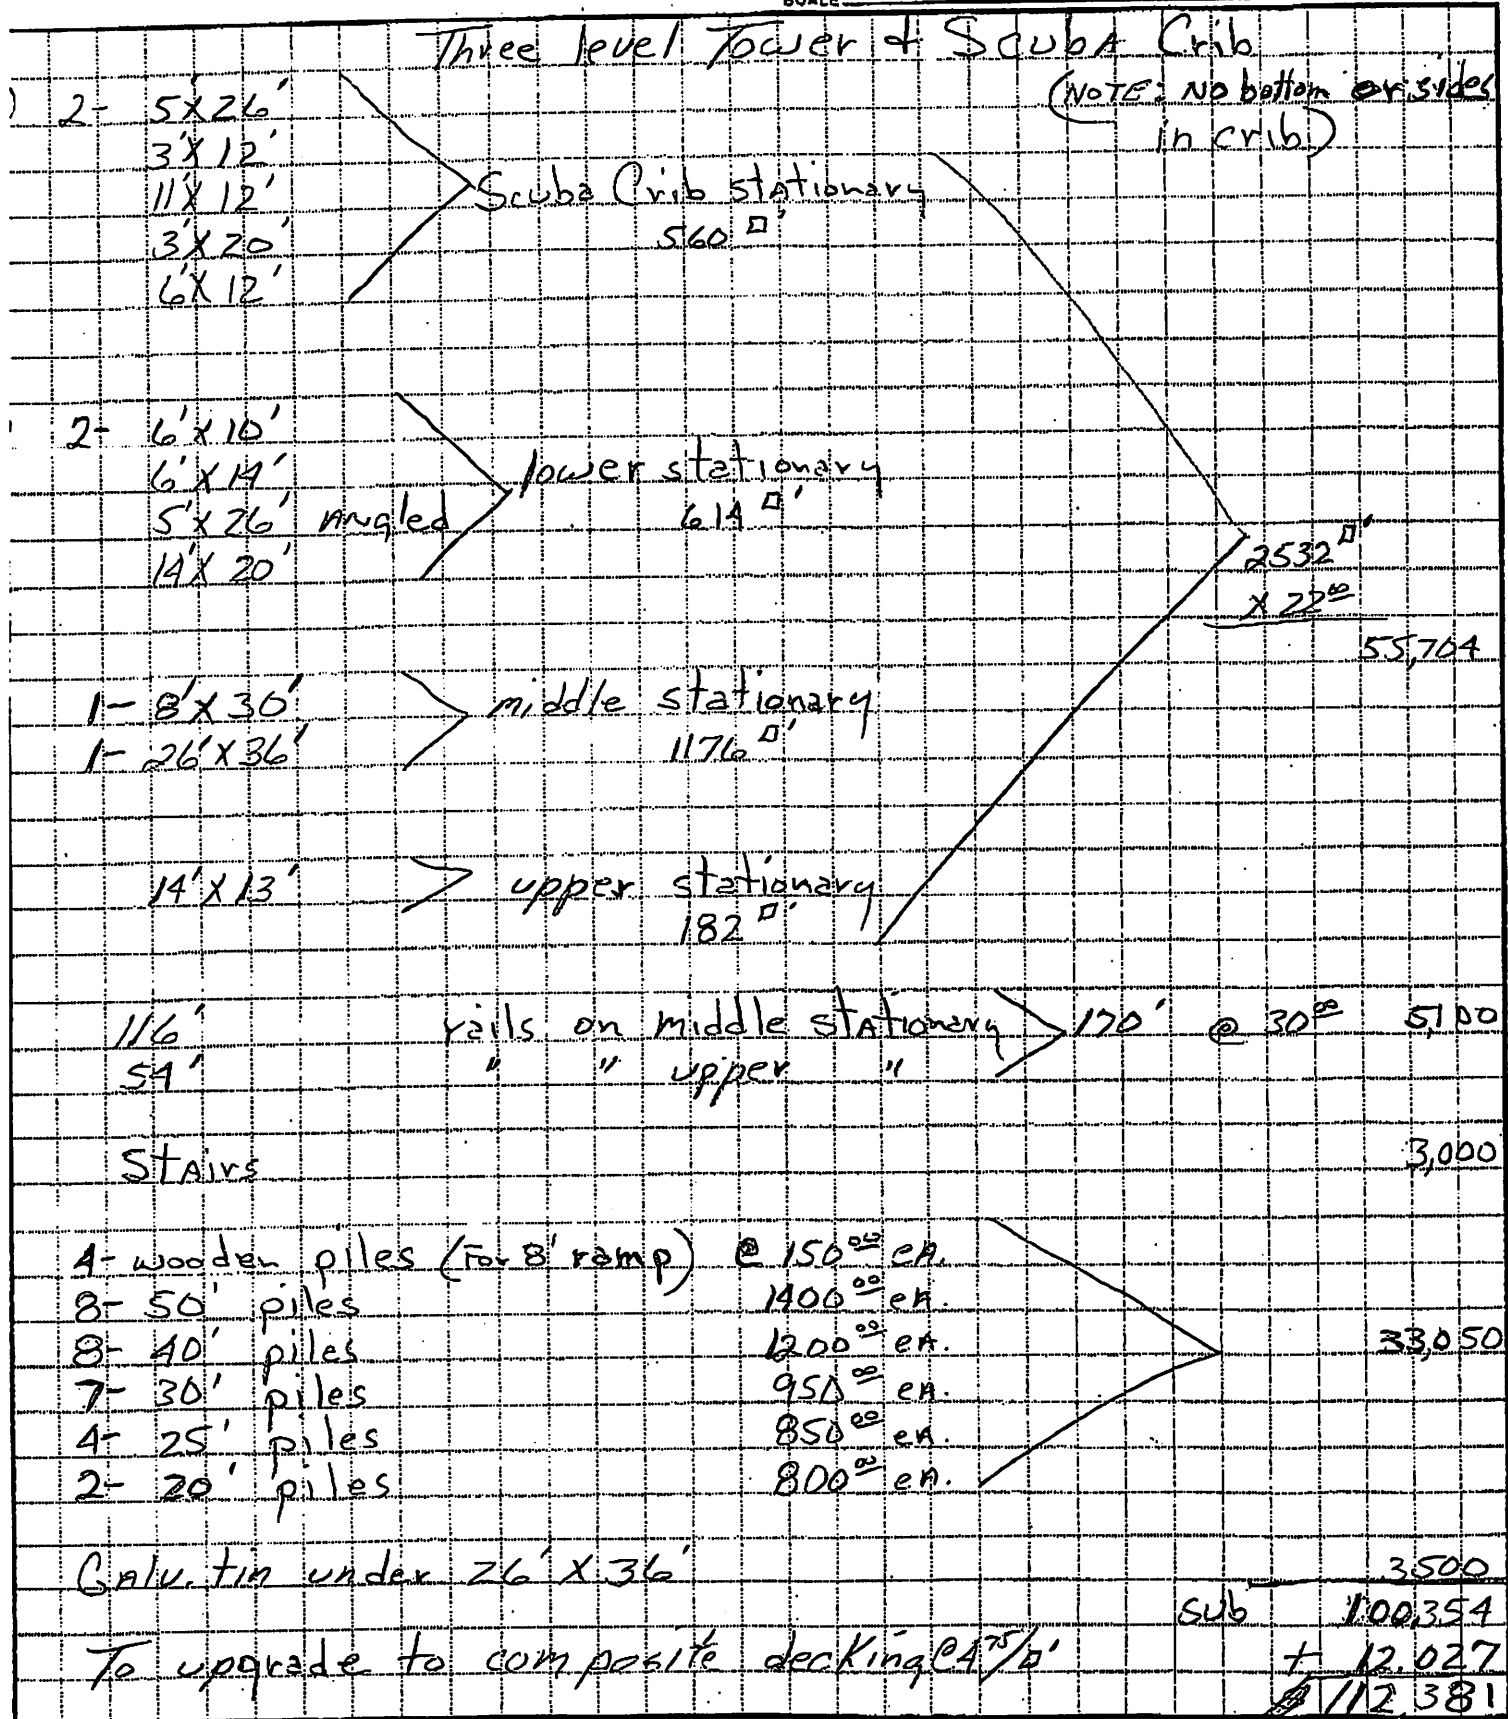 Three level Tower & Scuba Crib
(NOTE: No bottom or sides
in crib)
2- 5'X26'
3'X12'
11'X12'
3'X20'
6'X12'
Scuba Crib stationary
560 □'
2- 6'X10'
6'X14'
5'X26' Angled
14'X20'
lower stationary
614 □'
2532 □'
X 22.00
55,704
1- 8'X30'
1- 26'X36'
middle stationary
1176 □'
14'X13'
upper stationary
182 □'
116' rails on middle stationary 170' @ 30.00 5,100
54' " " upper "
Stairs 3,000
4- wooden piles (For 8' ramp) @ 150.00 eA.
8- 50' piles 1400.00 eA.
8- 40' piles 1200.00 eA. 33,050
7- 30' piles 950.00 eA.
4- 25' piles 850.00 eA.
2- 20' piles 800.00 eA.
Galv. tin under 26'X36' 3,500
sub 100,354
To upgrade to composite decking @ 4.75/□' + 12,027
112,381